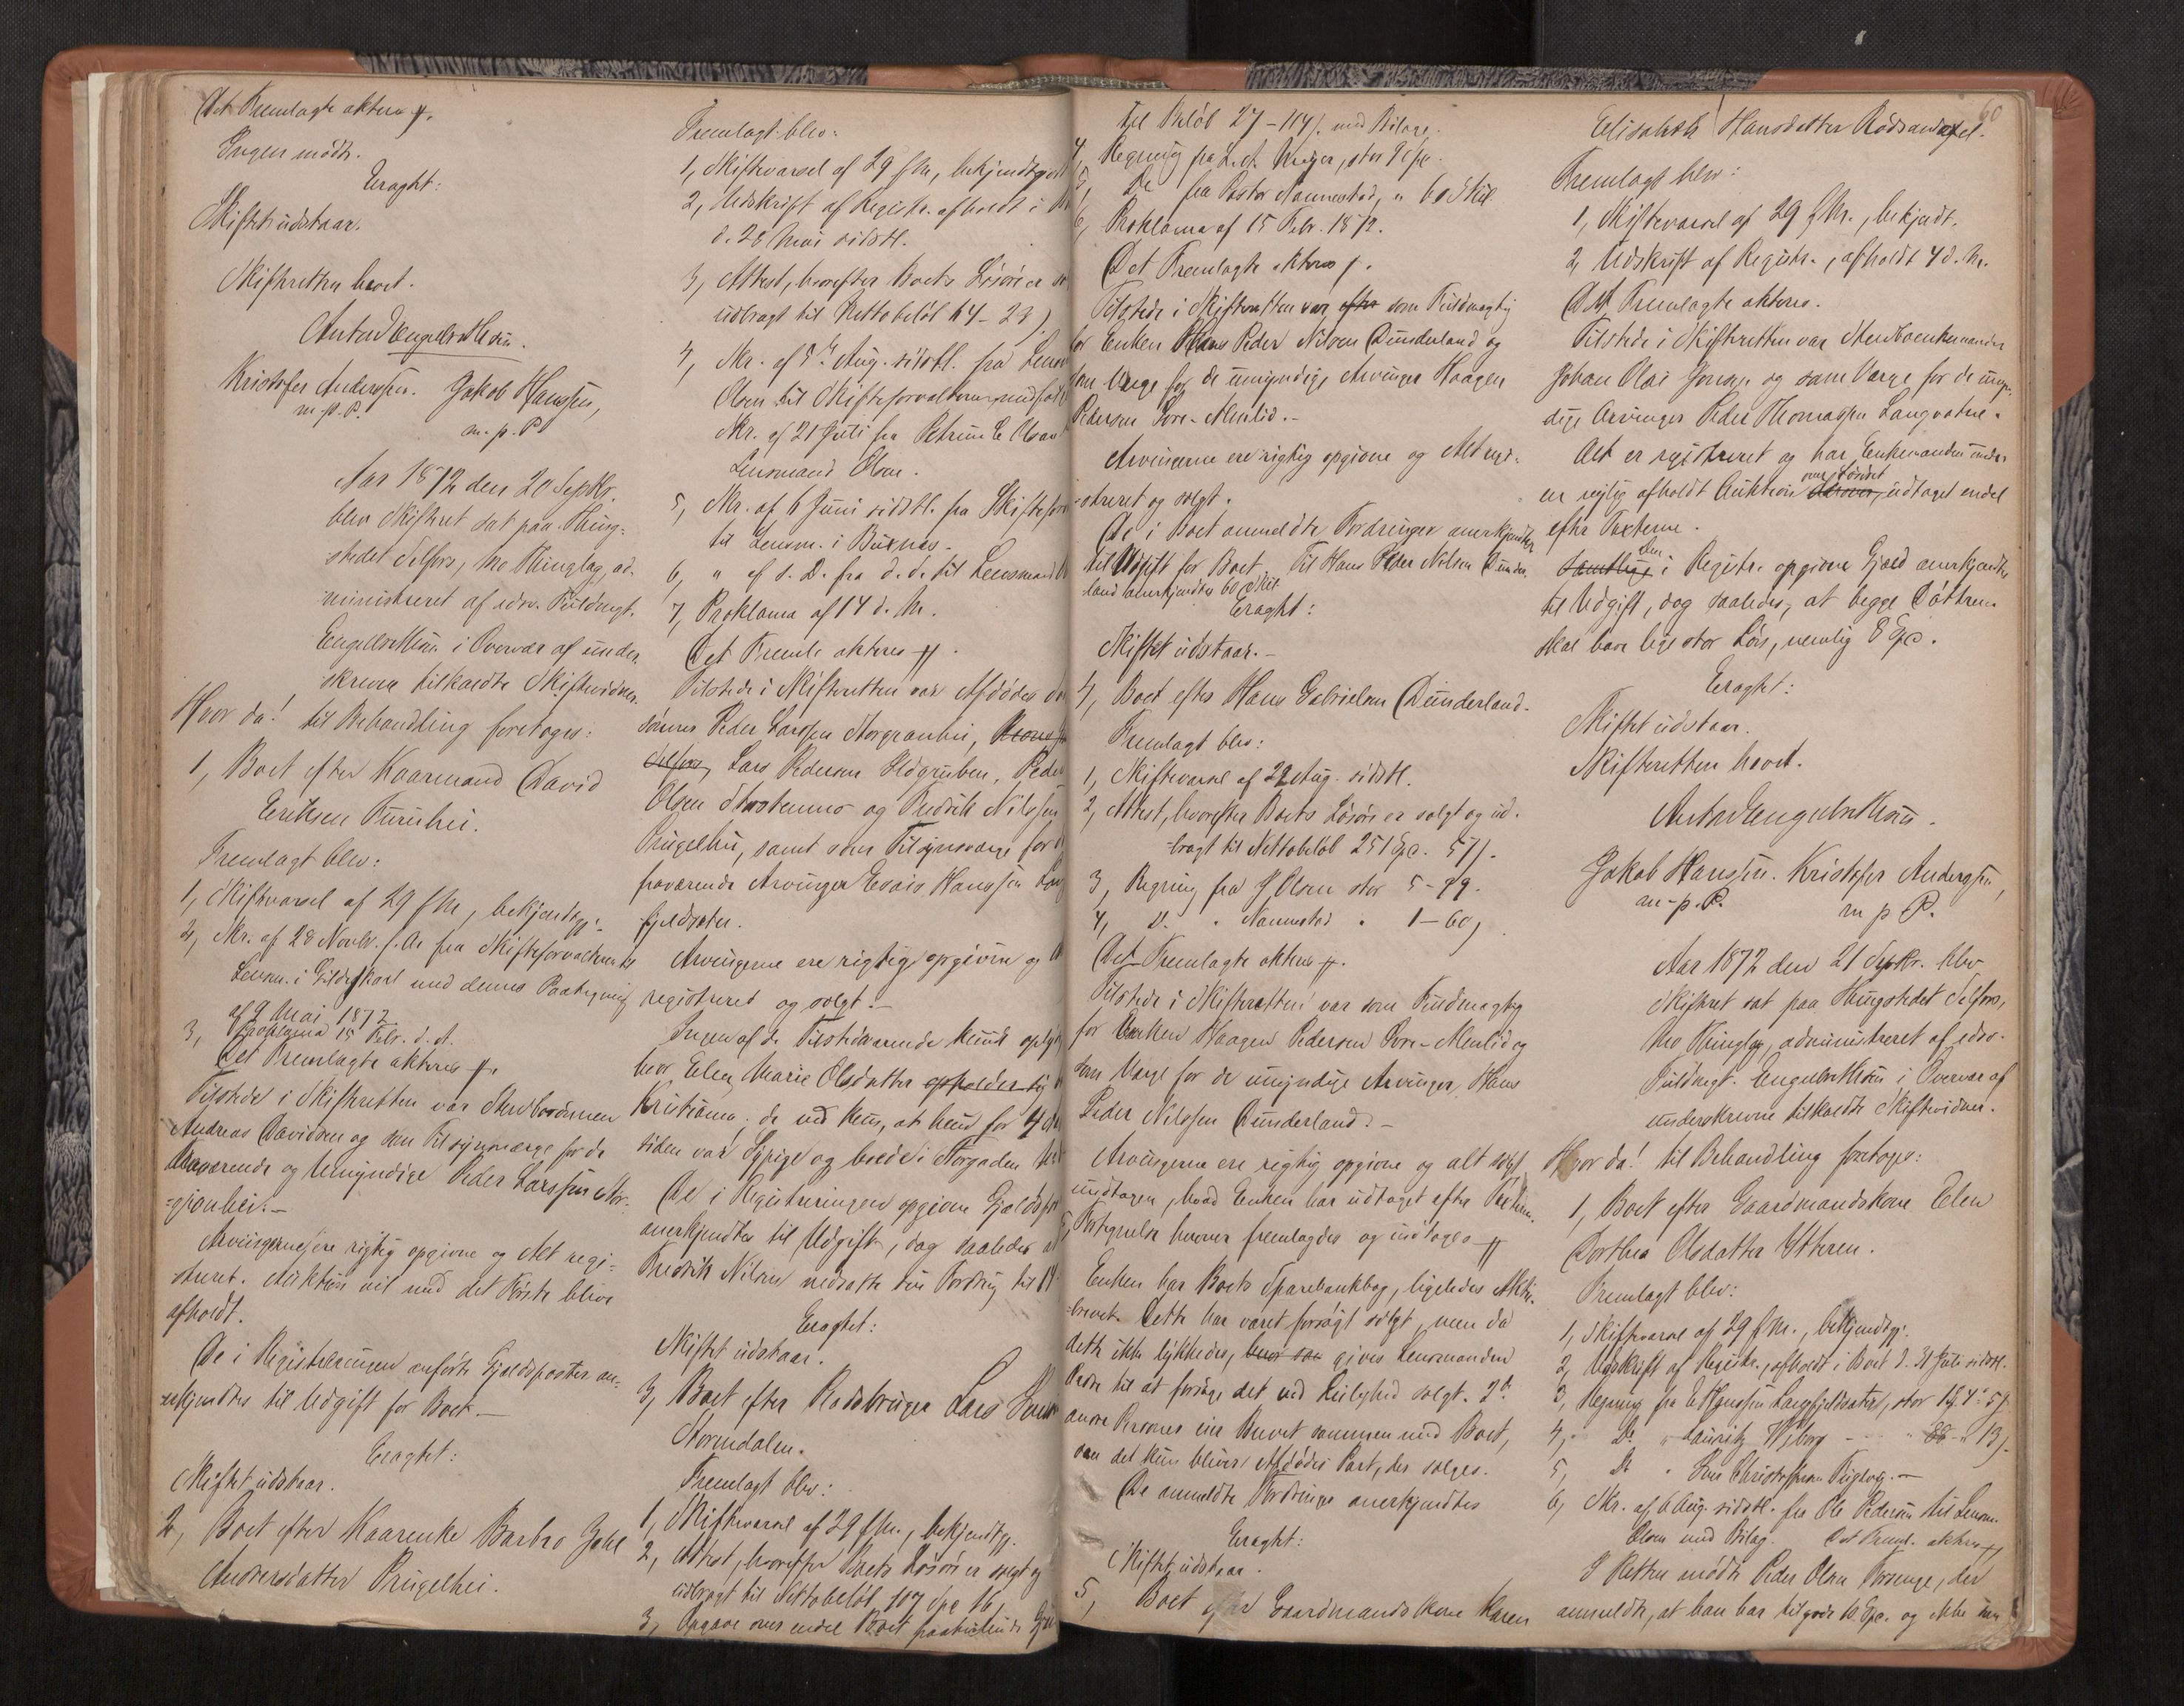 Det Fremlagte akteres #.
Ingen mødte.
Eragtet:
Skiftet udstaar.
Skifteretten hævet.
Anton Engelbrethsen.
Kristofer Anderssen. Jakob Hanssen,
m. p. P.
m. p. P.
Aar 1872 den 20 Septbr.
blev Skifteret sat paa Thing-
stedet Selfors, Mo Thinglag, ad-
ministreret af edsv. Fuldmgt.
Engelbrethsen i Overvær af under-
skrevne tilkaldte Skiftevidner.
Hvor da! til Behandling foretoges:
1, Boet efter Kaarmand David
Eriksen Furuhei.
Fremlagt blev:
1, Skiftevarsel af 29 f. M., bekjendtgj.
2, Skr. af 28 Novbr. f. A. fra Skifteforvalteren til
Lensm. i Gildeskaal med dennes Paategning
af 9 Mai 1872
3, Proklama 15 Febr. d. A.
Det Fremlagte akteres #.
Tilstede i Skifteretten var Stervbosønnen
Andreas Davidsen og som Tilsynsværge for de
fraværende og Umyndige Peder Larssen Stor-
-granhei.-
Arvingerne ere rigtig opgivne og Alt regi-
streret. Auktion vil med det Første blive
afholdt.
De i Registreringen anførte Gjældsposter an-
erkjendtes til Udgift for Boet.-
Eragtet:
Skiftet udstaar.
2, Boet efter Kaarenke Barbro
Andersdatter Prugelhei.
Fremlagt blev:
1, Skiftevarsel af 29 f. M., bekjendtgjort
2, Udskrift af Registr. afholdt i
d. 28 Mai sidstl.
3, Attest, hvorefter Boets Løsøre er
udbragt til Nettobeløb 14 - 23
4, Skr. af 5te Aug. sidstl. fra Lensm
Olsen til Skifteforvalteren
Skr. af 21 Juli fra
Lensmand Olsen.
5, Skr. af 6 Juni sidstl. fra Skiftefor
til Lensm. i Buxnes.
6, " af s. D. fra d. s. til Lensmand
7, Proklama af 14 d. M.
Det Freml. akteres #.
Tilstede i Skifteretten var Afdødes
sønner Peder Larssen Storgranhei,
Lars Pedersen Slegruben, Peder
Olsen og Fredrik Nilssen
Prugelhei, samt som Tilsynsværge for
fraværende Arvinger Esaias Hanssen Lang
fjeldsæter.
Arvingerne ere rigtig opgivne og
registreret og solgt.-
Ingen af de Tilstedeværende kunde opgive
hvor Elen Marie Olsdatter opholder sig
Kristiania; de ved kun, at hun for 4
siden var Pige og boede i Storgaden
De i Registreringen opgivne Gjælds
anerkjendtes til Udgift, dog saaledes at
Fredrik Nilsen nedsatte sin Fordring til 14
Eragtet:
Skiftet udstaar.
3, Boet efter Pladsbruger Lars
Stormdalen.
Fremlagt blev:
1, Skiftevarsel af 29 f. M., bekjendtgj.
2, Attest, hvorefter Boets Løsøre er solgt og
udbragt til Nettobeløb 107 Spd 16
3, Opgave over endel Boet paahvilende
til Beløb 27 - 114 ß. med Bilage.
4, Regning fra stor 90
5, Do fra Pastor Nannestad, " 60 Skil
6, Proklama af 15 Febr. 1872.
Det Fremlagte akteres #.
Tilstede i Skifteretten var efter som Fuldmægtig
for Enken Hans Peder Nilsen Dunderland og
som Værge for de umyndige Arvinger Haagen
Pedersen Bore-Menlid.-
Arvingerne ere rigtig opgivne og Alt regi-
-streret og solgt.
De i Boet anmeldte Fordringer anerkjendtes
til Udgift for Boet. Til Hans Peder Nilsen Dunder-
land anerkjendtes 60 Skil
Eragtet:
Skiftet udstaar.-
4, Boet efter Hans Gabrielsen Dunderland.
Fremlagt blev:
1, Skiftevarsel af 22 Aug. sidstl.
2, Attest, hvorefter Boets Løsøre er solgt og ud-
-bragt til Nettobeløb 251 Spd. 57 ß.
3, Regning fra J Olsen stor 5 - 99.
4, D. " Nannestad " 1 - 60,
Det Fremlagte akteres #.
Tilstede i Skifteretten var som Fuldmægtig
for Enken Haagen Pedersen Bore-Menlid og
som Værge for de umyndige Arvinger Hans
Peder Nilssen Dunderland.-
Arvingerne ere rigtig opgivne og alt solgt
undtagen, hvad Enken har udtaget efter Taxten.
5, Fortegnelse herover fremlagdes og modtoges #
Enken har Boets Sparebankbog, ligeledes Aktie-
brevet. Dette har været forsøgt solgt, men da
dette ikke lykkedes, gives Lensmanden
Ordre til at forsøge det ved Leilighed solgt. 2de
andre Personer eie Brevet sammen med Boet,
saa det kun bliver Afdødes Part, der sælges.
De anmeldte Fordringer anerkjendtes
Eragtet:
Skiftet udstaar.
5, Boet efter Gaardmandskone Karen
60
Elisabeth Hansdatter
Fremlagt blev:
1, Skiftevarsel af 29 f. M., bekjendt.
2, Udskrift af Registr., afholdt 4 d. M.
Det Fremlagte akteres.
Tilstede i Skifteretten var Stervboenkemanden
Johan Olai Jonsen og som Værge for de umyn-
dige Arvinger Peder Thomassen Langvatne.
Alt er registreret og har Enkemanden under
en nylig afholdt Auktion over Løsøret udtaget endel
efter Taxterne.
Samtlige den i Registr. opgivne Gjæld anerkjendtes
til Udgift, dog saaledes, at begge Døttrene
skal have lige stor Løn, nemlig 8 Spd.
Eragtet:
Skiftet udstaar.
Skifteretten hævet.
Anton Engelbrethsen.
Jakob Hanssen. Kristofer Anderssen,
m. p. P.
m p P.
Aar 1872 den 21 Septbr. blev
Skifteret sat paa Thingstedet Selfors,
Mo Thinglag, administreret af edsv.
Fuldmgt. Engelbrethsen i Overvær af
underskrevne tilkaldte Skiftevidner.
Hvor da! til Behandling foretoges:
1, Boet efter Gaardmandskone Elen
Dorthea Olsdatter Ytteren.
Fremlagt blev:
1, Skiftevarsel af 29 f. M., bekjendtgj.
2, Udskrift af Registr., afholdt i Boet d. 31 Juli sidstl.
3, Regning fra E Hanssen Langfjeldsæter, stor
4, Do " Lauritz Wiborg - - - " 88 " 13
5, Do " Christophersen
6, Skr. af 6 Aug. sidstl. fra Ole Pedersen til Lensm.
Olsen med Bilag. Det Freml. akteres #
I Retten mødte Peder Olsen , der
anmeldte, at han har tilgode 10 Spd. og ikke